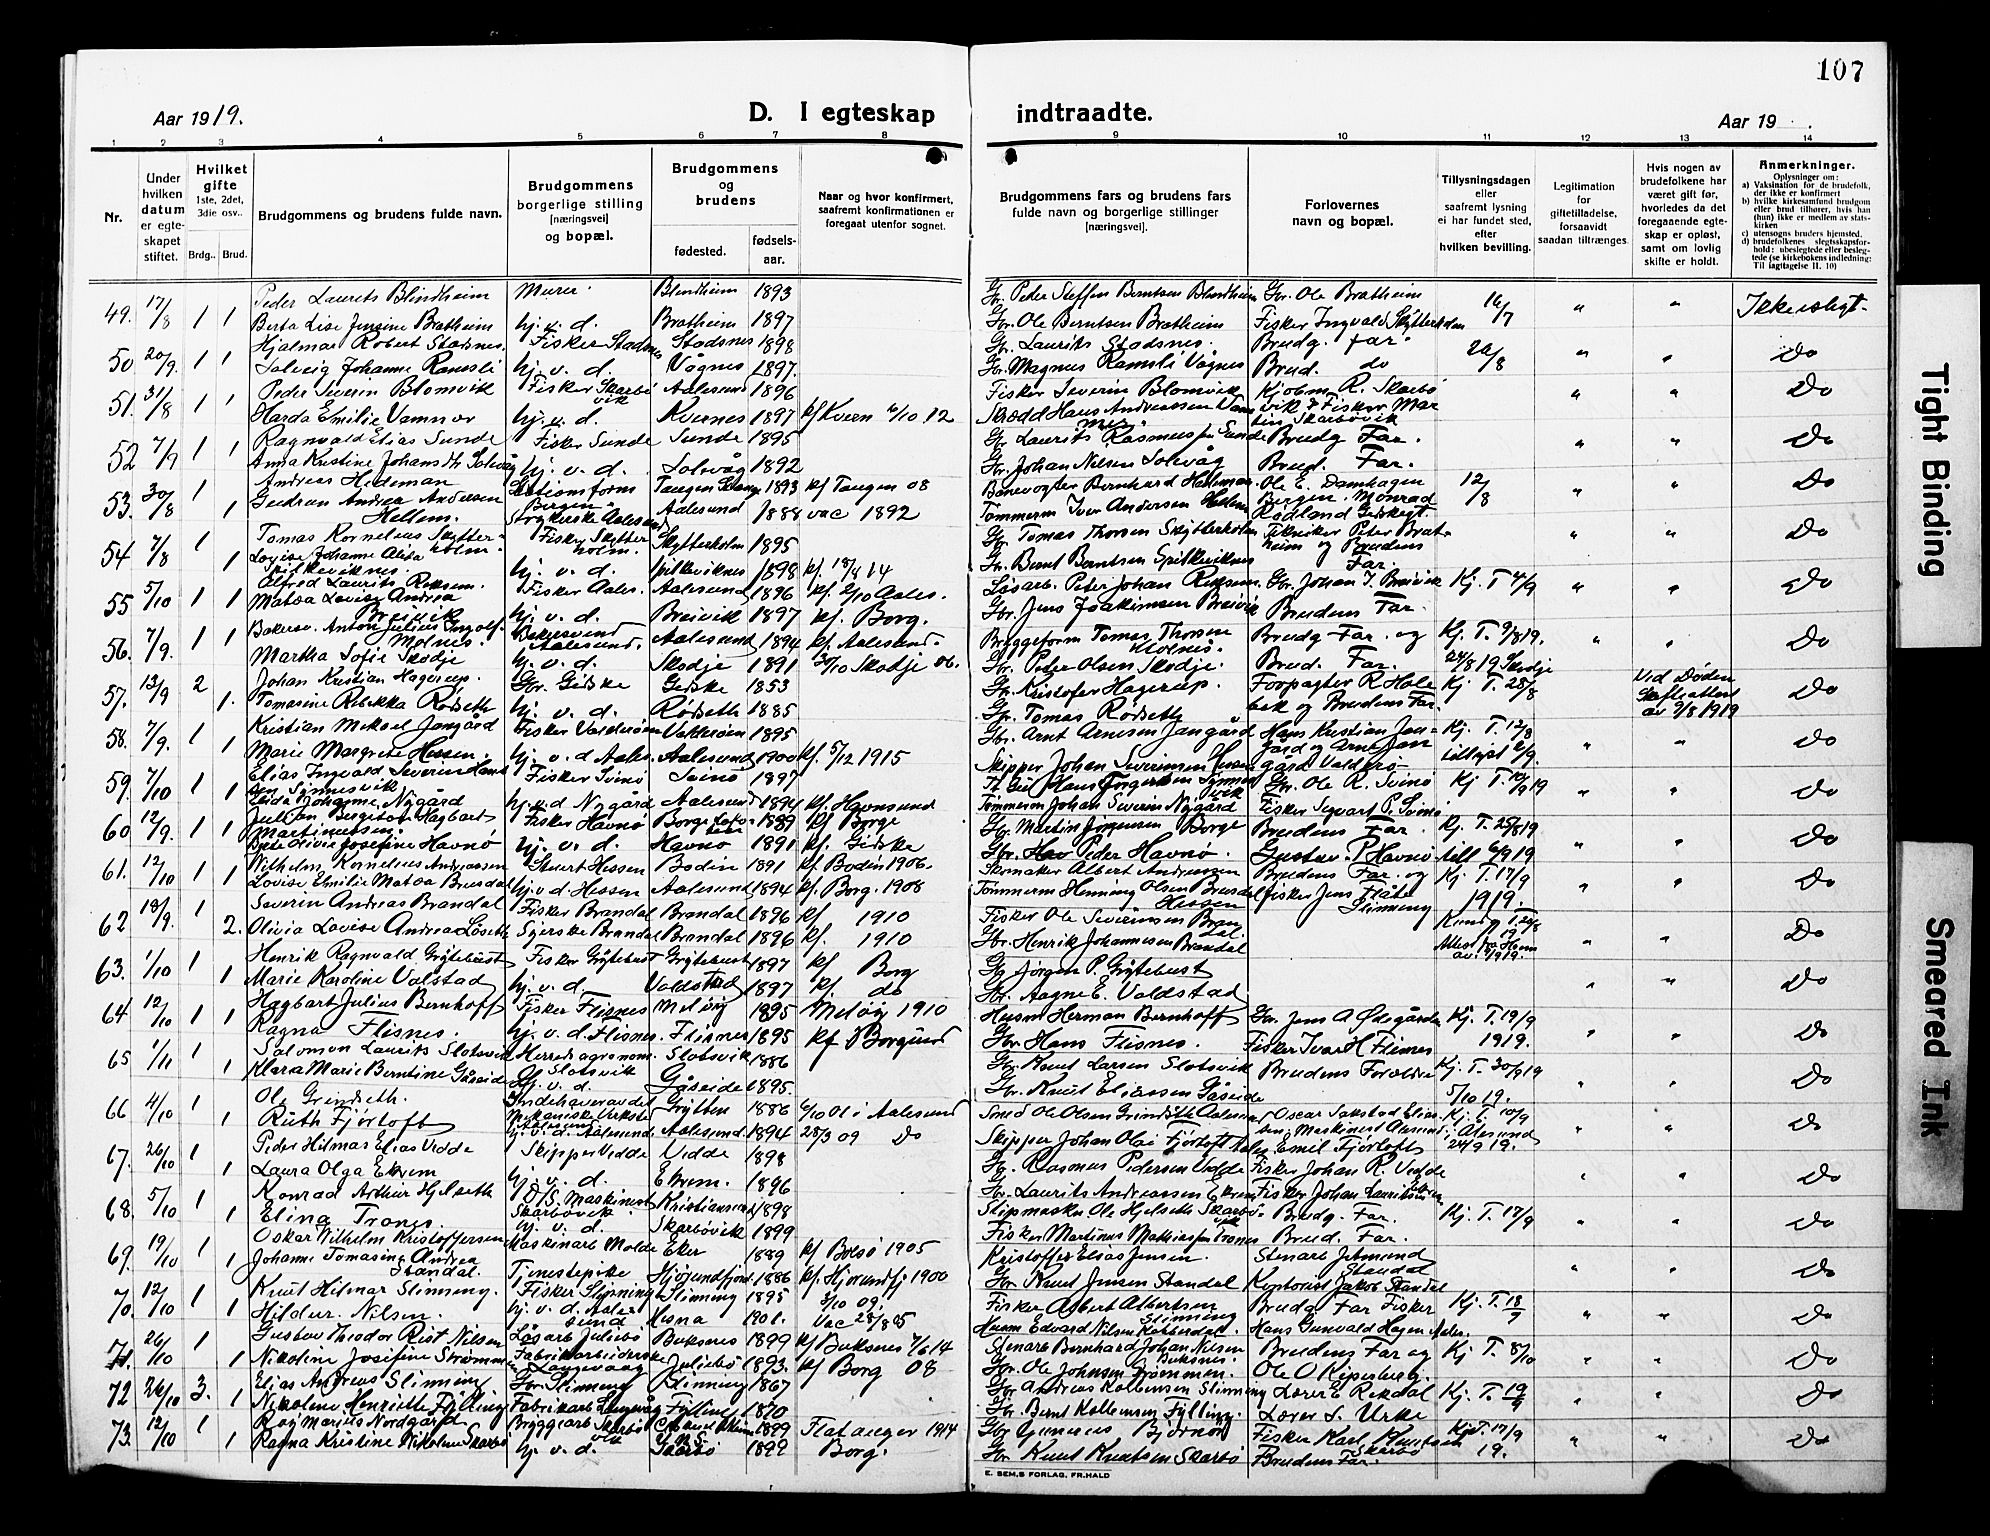 107
Aar 1919.
D. I egteskap indtraadte.
Aar 19 .
1 2 3 4 5 6 7 8 9 10 11 12 13 14
Nr.
Under hvilken datum er egteskapet stiftet.
Hvilket gifte 1ste, 2det, 3die osv..
Brdg.. Brud.
Brudgommens og brudens fulde navn.
Brudgommens borgerlige stilling [næringsvei] og bopæl.
Brudgommens og brudens
fødested.
fødsels-aar.
Naar og hvor konfirmert, saafremt konfirmationen er foregaat utenfor sognet.
Brudgommens fars og brudens fars fulde navn og borgerlige stillinger [næringsvei].
Forlovernes navn og bopæl.
Tillysningsdagen eller saafremt lysning ei har fundet sted, efter hvilken bevilling.
Legitimation for giftetilladelse, forsaavidt saadan tiltrænges.
Hvis nogen av brudefolkene har været gift før, hvorledes da det foregaaende egteskap er opløst, samt om lovlig skifte er holdt.
Anmerkninger.
Oplysninger om:
a) Vaksination for de brudefolk, der ikke er konfirmert
b) hvilke kirkesamfund brudgom eller brud tilhører, hvis han (hun) ikke er medlem av statskirken
c) utensogns bruders hjemsted.
d) brudefolkenes slegtsskapsforhold: ubeslegtede eller beslegtede (se kirkebokens indledning: Til iagttagelse II. 10)
49. 17/8 1 1 Peder Laurits Blindheim Murer Blindheim 1893 Gr. Peder Steffen Berntsen Blindheim Gbr. Ole Bratheim 16/7 " " Ikke slegt.
Berta Lise Jensine Bratheim hj. v. d. Bratheim 1897 Gbr. Ole Berntsen Bratheim Fisker Ingvald Skytterholm
50 20/9. 1 1 Hjalmar Robert Stadsnes. Fisker Stadsnes Stadsnes 1898 Gr. Laurits Stadsnes. Brudg. far. 20/8 " " Do
Solveig Johanne Ramsli hj. v. d. Vågnes 1897. Gr. Magnus Ramsli Vågnes Brud. do
51. 31/8 1 1 Peder Severin Blomvik Fisker Skarbøvik Aalesund 1896 Fisker Severin Blomvik Kjøbm. R. Skarbøvik & Fisker Martin Skarbøvik " " Do
Harda Emilie Vamnor hj. v. d. Kvernes 1897 kf Kvern /10 12
52 7/9 1 1 Ragnvald Elias Sunde Fisker Sunde Sunde 1895 Gr. Laurits Rasmussen Sunde Brudg Far. " " Do
Anna Kristine Johansdtr Solevåg hj. v. d. Solevåg 1892 Gr. Johan Nilsen Solevåg Brud. Far.
53. 30/8 1 1 Andreas Hedeman Stationsform Bergen Tangen 1893 kf Tangen 08 Banevogter Bernhard Hedeman Ole E. Damhagen Bergen. 12/8 " " Do
Gudrun Andrea Andersen Hellem. Strykerske Aalesund Aalesund 1888 vac 1892 Tømmerm Iver Andersen Hellem
54 7/8 1 1 Tomas Kornelius Skytterholm. Fisker Skytterholm. Skytterholm 1895 Gr. Tomas Thorsen Skytterholm Peter Bratheim og Brudens Far. " " Do
Lovise Johanne Alida Spilkeviknes. hj. v. d. Spilkeviknes 1898 kf. 18/8 14
55 5/10 1 1 Alfred Laurits Reksem. Fisker Aales. Aalesund 1896 kf. 2/10 Aales. Løsarb. Peter Johan Reksem Gbr. Johan J. Breivik Kj. T 4/9 " " Do
Matea Lovise Andrea Breivik hj. v. d. Breivik 1897 kf. Borg. Gbr. Jens Joakimsen Breivik Brudens Far.
56. 7/9. 1 1 Bakersv. Anton Julius Ingolf Molnes. Bakersvend Aalesund. Aalesund 1894 kf. Aalesund. Bryggeform Tomas Thorsen Brudg Far. og Kj. T. 9/8 19. " " Do
Martha Sofie Skodje hj. v. d. Skodje 1891 /10 Skodje 06. Gr. Peder Olsen Skodje. Brud. Far. 24/8 19 Skodje
57. 13/9 2 1. Johan Kristian Hagerup. Gbr. Gidske Gidske 1853 Gr. Kristofer Hagerup. Forpagter R Kj T. 25/8 Ved Døden Skifteattest av 9/8 1919 Do
Tomasine Rebekka Rødseth hj. v. d. Rødseth 1885 Gr. Tomas Rødseth og Brudens Far.
58. 7/9. 1 1 Kristian Mikael Jangård Fisker Valderøen Valderøen 1895 Gbr. Arnt Arnesen Jangård Hans Kristian Jangård og Arnt Jangård Valderø Kj. T. 12/8 " " Do
Marie Margrete Hessen. hj. v. d Aales. Aalesund 1900 kf. 5/12 1915 Skipper Johan Severinsen Hessen
59. 7/10 1 1 Elias Ingvald Severin Hansen Synnesvik Fisker Svinø Svinø 1897 Gbr. Ole R. Svinø Kj T. 10/9 19 " " Do
Elida Johanne Nygård hj. v. d Nygård Aalesund 1894 kf. Havnsund Tømmerm Johan Severin Nygård Fisker Sigvart P. Svinø
60 12/9. 1 1 Julian Bergeton Hagbart Martinussen. Fisker Havnø Borge Lofoten 1889 kf Borge Gbr. Martin Jørgensen Borge Brudens Far. Kj. T. 25/8 19 " " Do
Olivie Josefine Havnø hj. v. d. Havnø 1891 kf. Gidske Gbr. Peder Havnø. Gustav P Havnø till 6/9 19
61. 12/10 1 1 Vilhelm Kornelius Andreassen Stuert Hessen Bodin 1891 kf Bodin 1906. Skomaker Albert Andreassen Brudens Far. og Kj. T. 17/9 1919. " " Do
Lovise Emilie Matea Brusdal hj. v. d Hessen Aalesund 1894 kf. Borg. 1908 Tømmerm Henning Olsen Brusdal Hessen Fisker Jens Flåte Slinning
62 18/9. 1 2. Severin Andreas Brandal Fisker Brandal Brandal 1896 kf 1910 Fisker Ole Severinsen Brandal. " " Do
Olivia Lovise Andrea Løseth Syerske Brandal Brandal 1896 kf. 1910 Gbr. Henrik Johannesen Brandal
63. 1/10 1 1 Henrik Ragnvald Grytebust Fisker Grytebust Grytebust 1897 kf Borg Gr Jørgen P. Grytebust " " Do
Marie Karoline Valstad hj. v. d. Valdstad 1897 kf. do Gbr. Aagne E. Valdstad
64 12/10 1 1 Hagbart Julius Bernhoff Fisker Flisnes Meløy 1895 Meløy 1910 Husm Herman Bernhoff Gbr. Jens A Ødegården Kj. T. 19/9 1919. " " Do
Ragna Flisnes. hj. v. d. Flisnes. Flisnes 1895 kf Borgund Gbr Hans Flisnes. Fisker Ivar H Flisnes
65 1/11 1 1 Salomon Laurits Slotsvik Herredsagronom. Slotsvik Slotsvik 1886 Gbr. Knut Larsen Slotsvik Brudens Forældre Kj. T. 30/9 19 " " Do
Klara Marie Berntine Gåseide hj. v. d. Gåseide 1895. Gbr. Knut Eliassen Gåseide 5/10 19.
66 4/10 1 1 Ole Grindseth. Indehaver av det Mekaniske Verksted Aalesund Grytten 1886 6/10 01 i Aalesund Smed Ole Olsen Grindseth Aalesund Oscar Sakstad Eliassen, Maskinist Aalesund. Kj. T. 10/9 Aalesund 24/9 19. " " Do
Ruth Fjørtoft hj. v. d. Aalesund. Aalesund. 1894 28/3 09 Do Skipper Johan Olai Fjørtoft Emil Fjørtoft
67. 26/10 1 1 Peder Hilmar Elias Vedde Skipper Vedde Vedde 1898 Gr. Rasmus Pedersen Vedde Fisker Johan R. Vedde " " Do
Laura Olga Ekrem hj. v. d. Ekrem. 1896 Gbr. Laurits Andreassen Ekrem Fisker Johan Lauritsen
68. 5/10 1 1 Konrad Arthur Hjelseth D/S. Maskinist Skarbøvik. Kristiansund 1898 Skipmask. Ole Hjelseth Skarbøvik Brudg. Far. Kj. T. 17/9 " " Do
Elina Trones. hj. v. d. Skarbøvik 1899 Fisker Martinus Mathiassen Trones Brud. Far.
69. 19/10 1 1 Oskar Vilhelm Kristoffersen Maskinarb Molde Eker 1889 kf Bolsø 1905 Kristoffer Elias Jensen. Stenarb. Standal " " Do
Johanne Tomasine Andrea Standal. Tjenestepike Hjørundfjord 1886 kf. Hjørundfj 1900 Gbr. Knut Jensen Standal Kontorist Jakob Standal
70. 12/10 1 1 Knut Hilmar Slinning. Fisker Slinning Slinning 1895 Fisker Albert Albertsen Slinning Brudg Far Fisker Kj. T. 18/9 " " Do
Hildur Nilsen. hj. v. d. Aalesund Hesna 1901. Vac 28/8 05 Husm. Edvard Nilsen Hans Gunvald Hagen Aales.
71. 26/10 1 1 Gustav Theodor Rist Nilsen Løsarb Julebø Buksnes 1899 kf Buksnes 7/6 14 Stenarb Bernhard Johan Nilsen Buksnes. Brudens Far og Kj T. 8/10 " " Do
Nikoline Josefine Strømmen Fabrikarbeiderske Langevaag Julebø 1893. kf Borg 08 Gbr. Ole Johnsen Strømmen. Ole O Ripsberg.
72 26/10 3. 1 Elias Andreas Slinning Gbr. Slinning Slinning 1867 Gbr Andreas Kolbensen Slinning Lærer E Rekdal Kj. T. 19/9 " " Do
Nikoline Henriette Fylling Fabrikarb. Langevåg Fylling 1870 Gbr. Bernt Kolbensen Fylling. Lærer S. Urke
73. 12/10 1 1 Roy Marius Nordgård Bryggearb Skarbøvik 1899 Flatanger 1914 Gbr Bjørnør Fisker Karl Knutsen Skarbø Kj. T. 17/9 19. " " Do
Ragna Kristine Nikoline Skarbø hj. v. d. Skarbø 1899 Borg. Gbr Knut Knutsen Skarbø Brudens Far.
E. SEM,S FORLAG, FR.HALD
Tight Binding
Smeared Ink